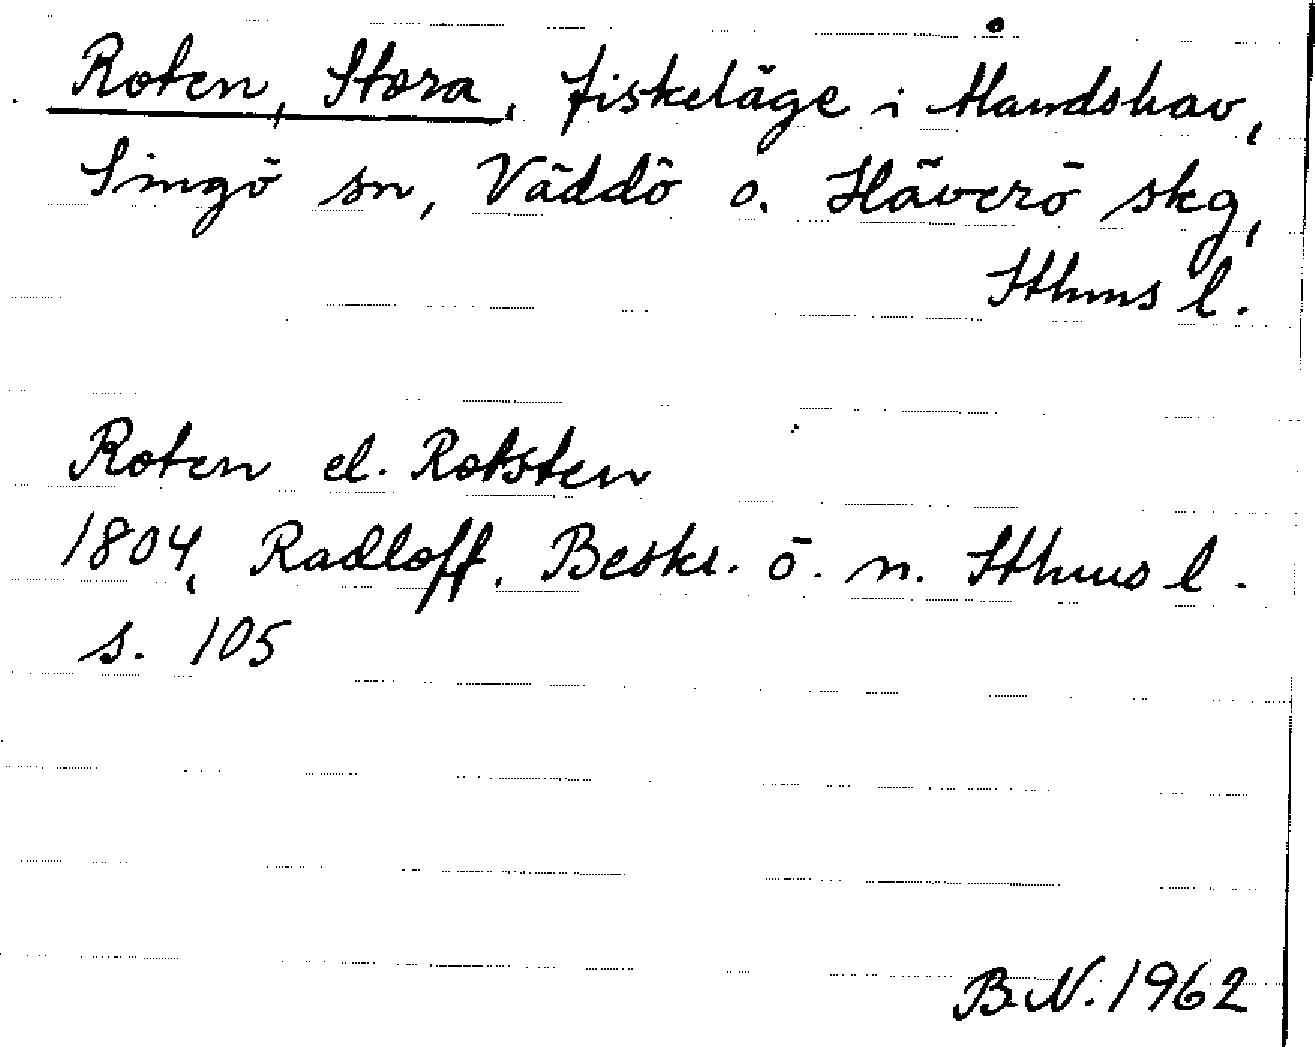 Roten, Stora, fiskeläge i Ålandshav,
Singö sn, Väddö o. Häverö skg,
Sthms l.
Roten el. Rotsten
1804, Radloff. Beskr. ö. n. Sthms l.
s. 105
B.N. 1962